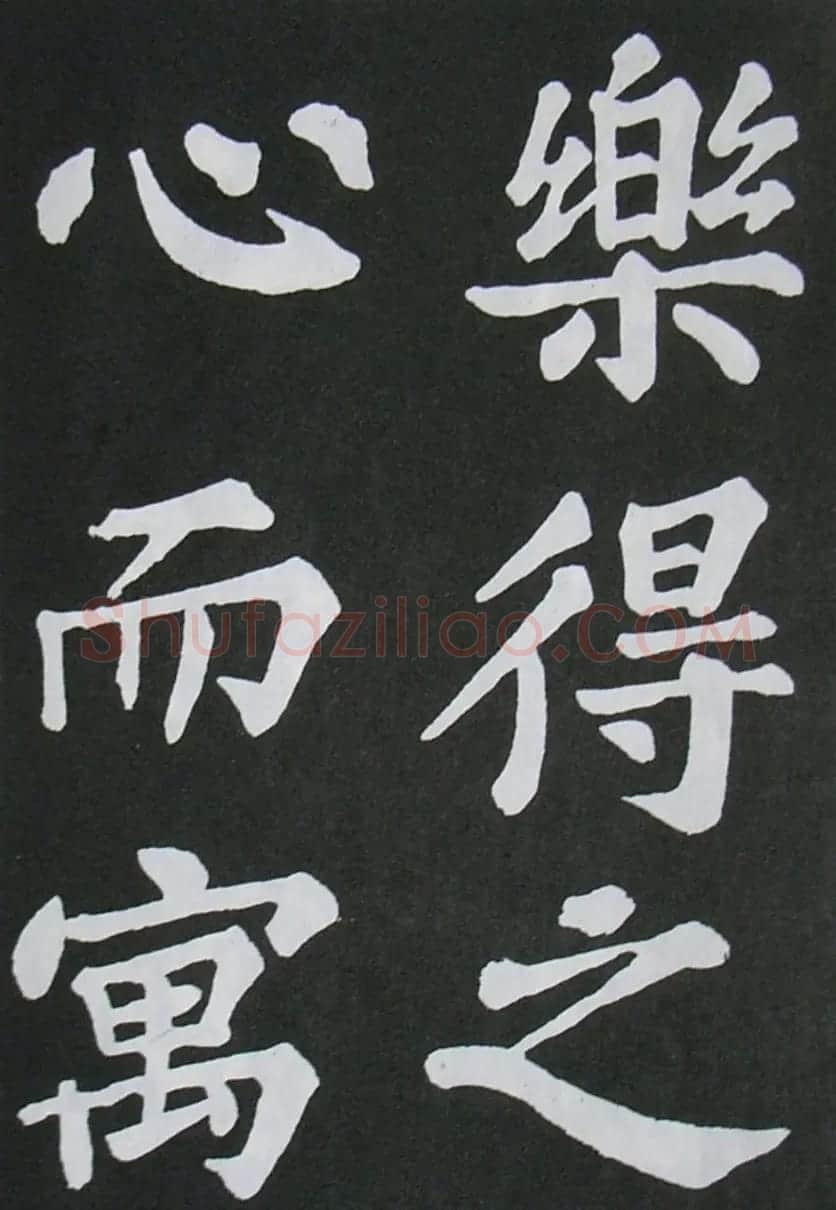 樂得之
心而寓
Shufaziliao.COM